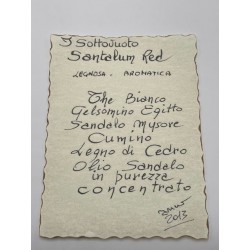 I Sottovuoto
Santalum Red
LEGNOSA. AROMATICA
The Bianco
Gelsomino Egitto
Sandalo Mysore
Cumino
Legno di Cedro
Olio Sandalo
in purezza
concentrato
anno
2013